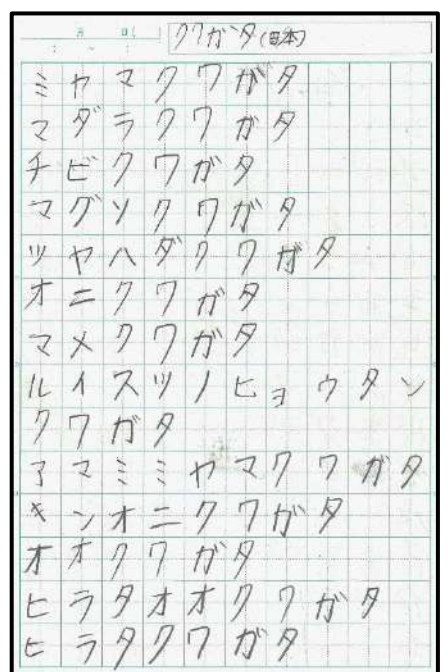 月 日( )
: ～ :
クワガタ(日本)
ミヤマクワガタ
マダラクワガタ
チビクワガタ
マグソクワガタ
ツヤハダクワガタ
オニクワガタ
マメクワガタ
ルイスツノヒョウタン
クワガタ
アマミミヤマクワガタ
キンオニクワガタ
オオクワガタ
ヒラタオオクワガタ
ヒラタクワガタ